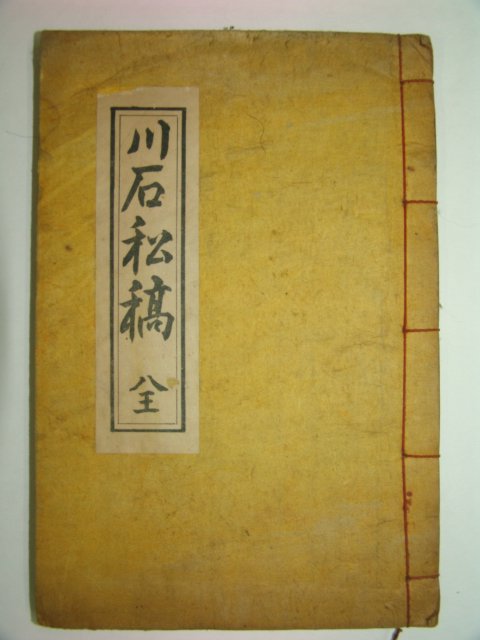 川石私稿 全